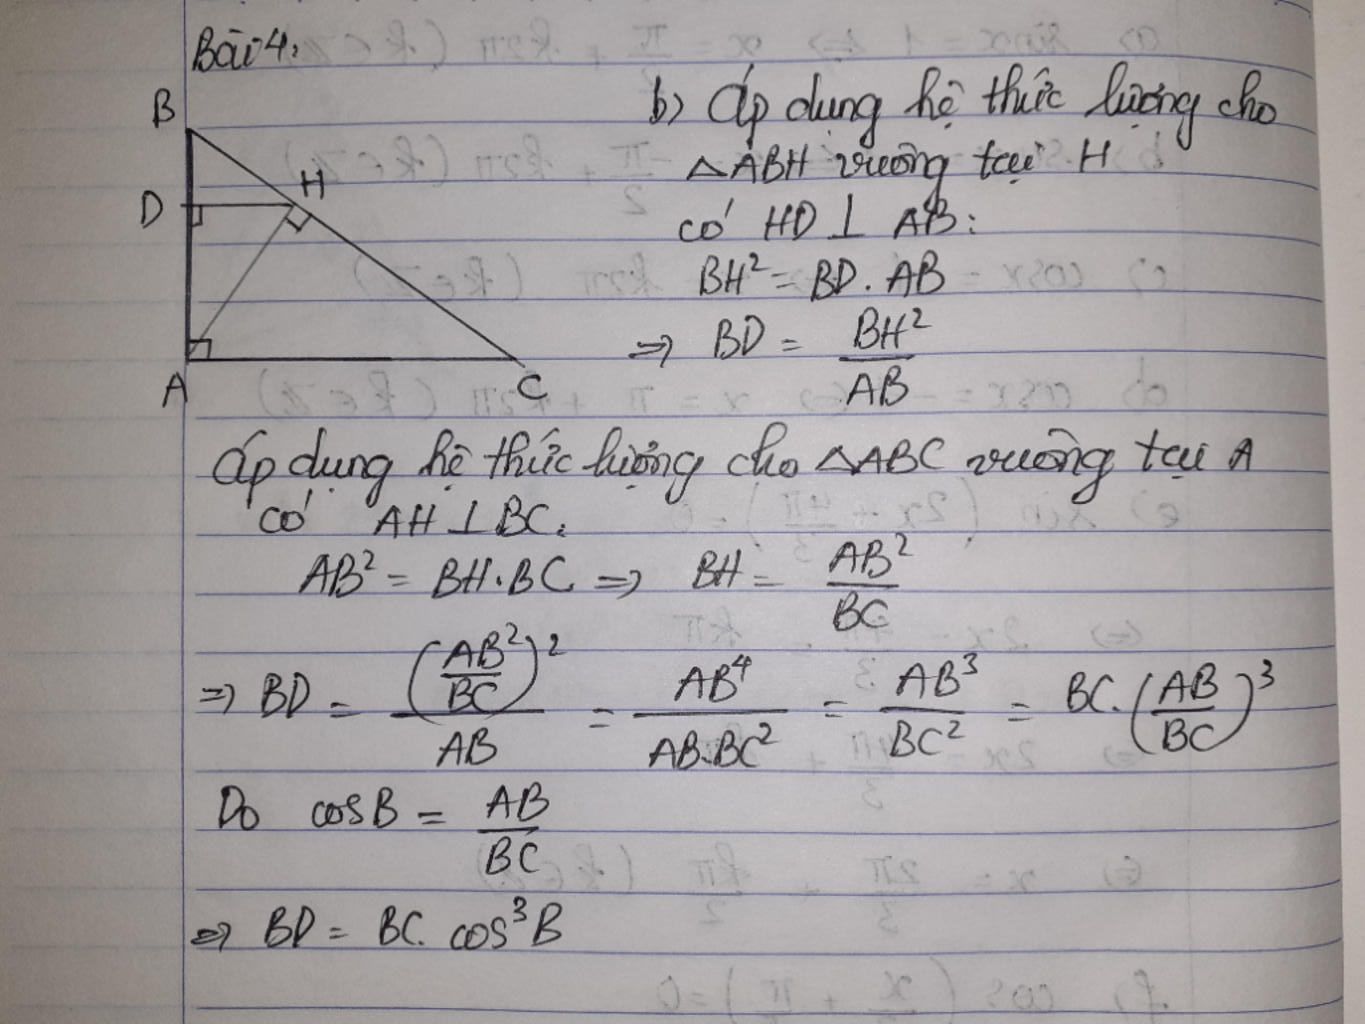 Bài 4:
B
D
H
A
C
b) Áp dụng hệ thức lượng cho
△ABH vuông tại H
có HD ⊥ AB:
BH² = BD. AB
⇒ BD = BH²/AB
Áp dụng hệ thức lượng cho △ABC vuông tại A
có AH ⊥ BC:
AB² = BH.BC ⇒ BH = AB²/BC
⇒ BD = (AB²/BC)²/AB = AB⁴/AB.BC² = AB³/BC² = BC.(AB/BC)³
Do cosB = AB/BC
⇒ BD = BC. cos³B